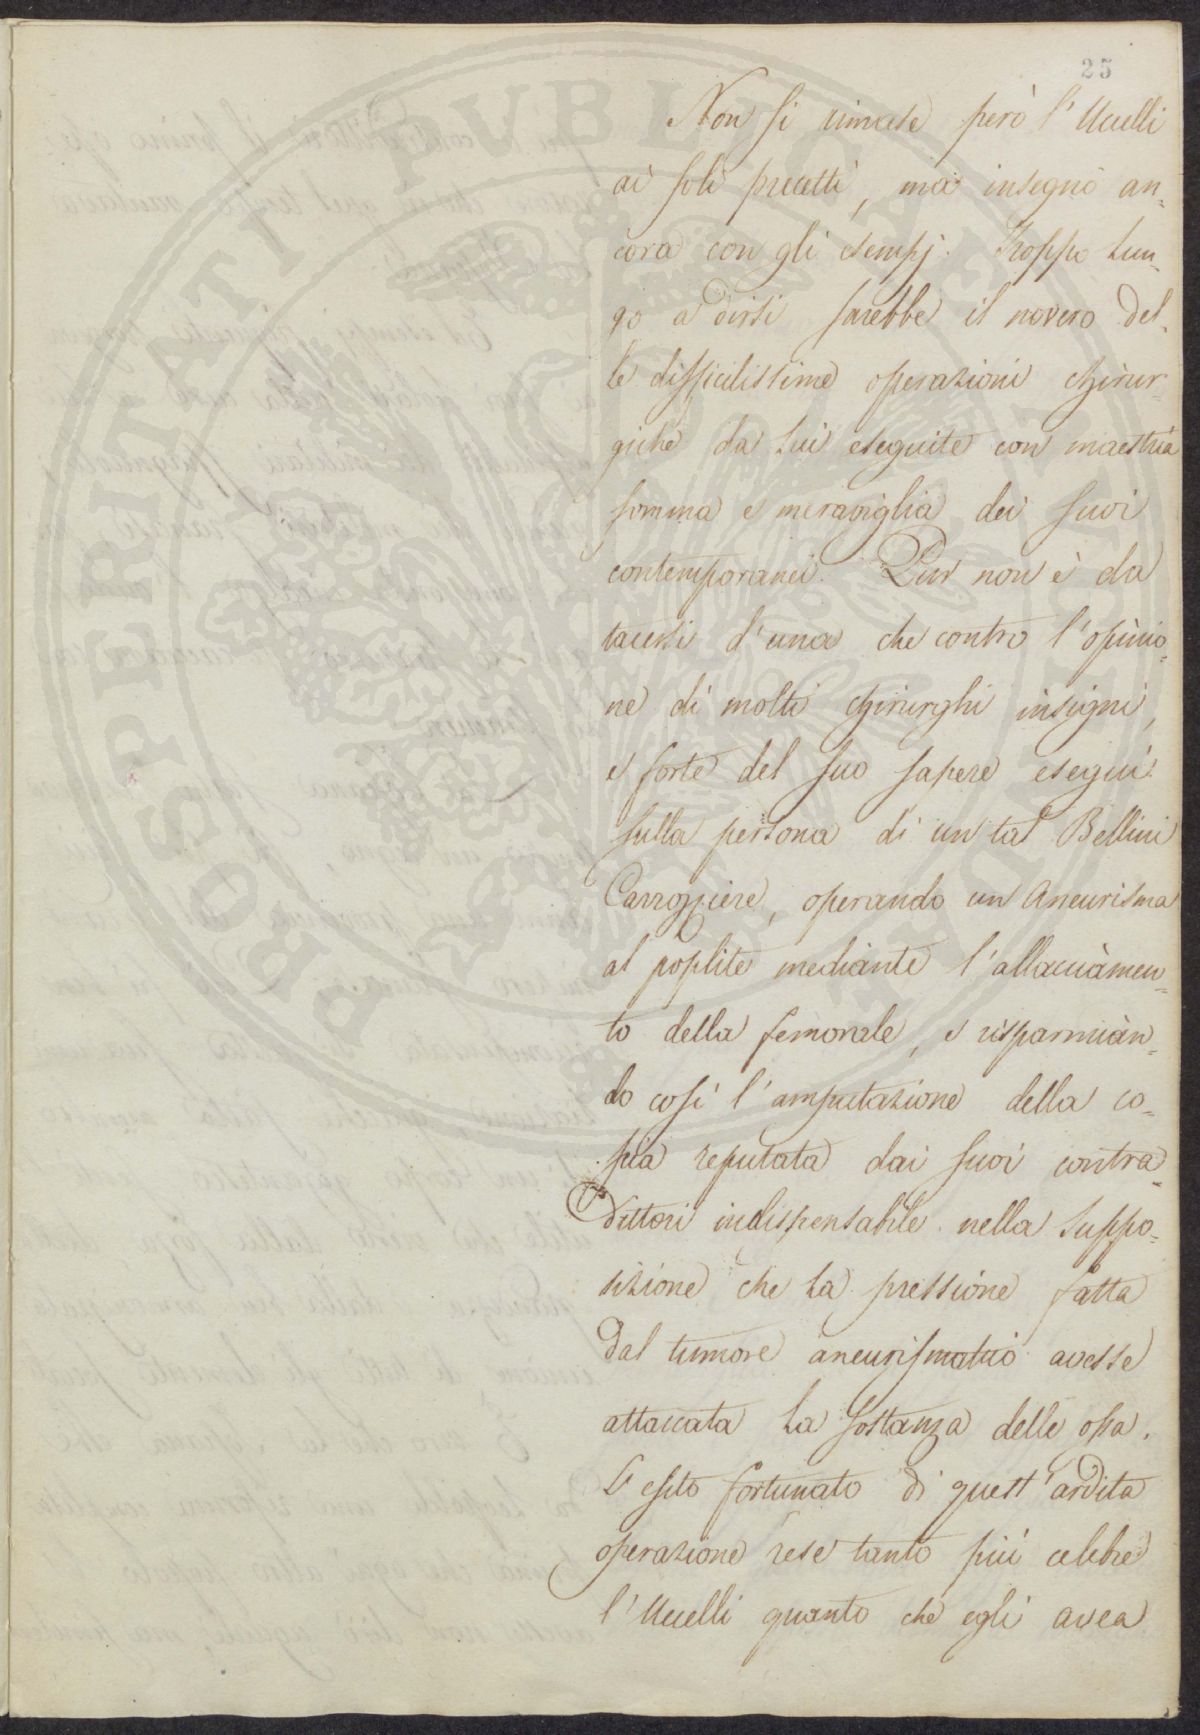 25
Non si rimase però l'Uccelli
ai soli precetti, ma insegnò an=
cora con gli esempj. Troppo lun=
go a dirsi sarebbe il novero del=
le difficilissime operazioni chirur=
giche da lui eseguite con maestria
somma e meraviglia dei suoi
contemporanei. Pur non è da
tacersi d'una che contro l'opinio=
ne di molti chirurghi insigni,
e forte del suo sapere eseguì
sulla persona di un tal Bellini
Carrozziere, operando un Aneurisma
al poplite mediante l'allacciamen=
to della femorale, e risparmian=
do così l'amputazione della co=
scia reputata dai suoi contra=
dittori indispensabile nella suppo=
sizione che la pressione fatta
dal tumore aneurismatico avesse
attaccata la sostanza delle ossa.
L'esito fortunato di quest'ardita
operazione rese tanto più celebre
l'Uccelli quanto che egli avea
PROSPERITATI PVBLICAE